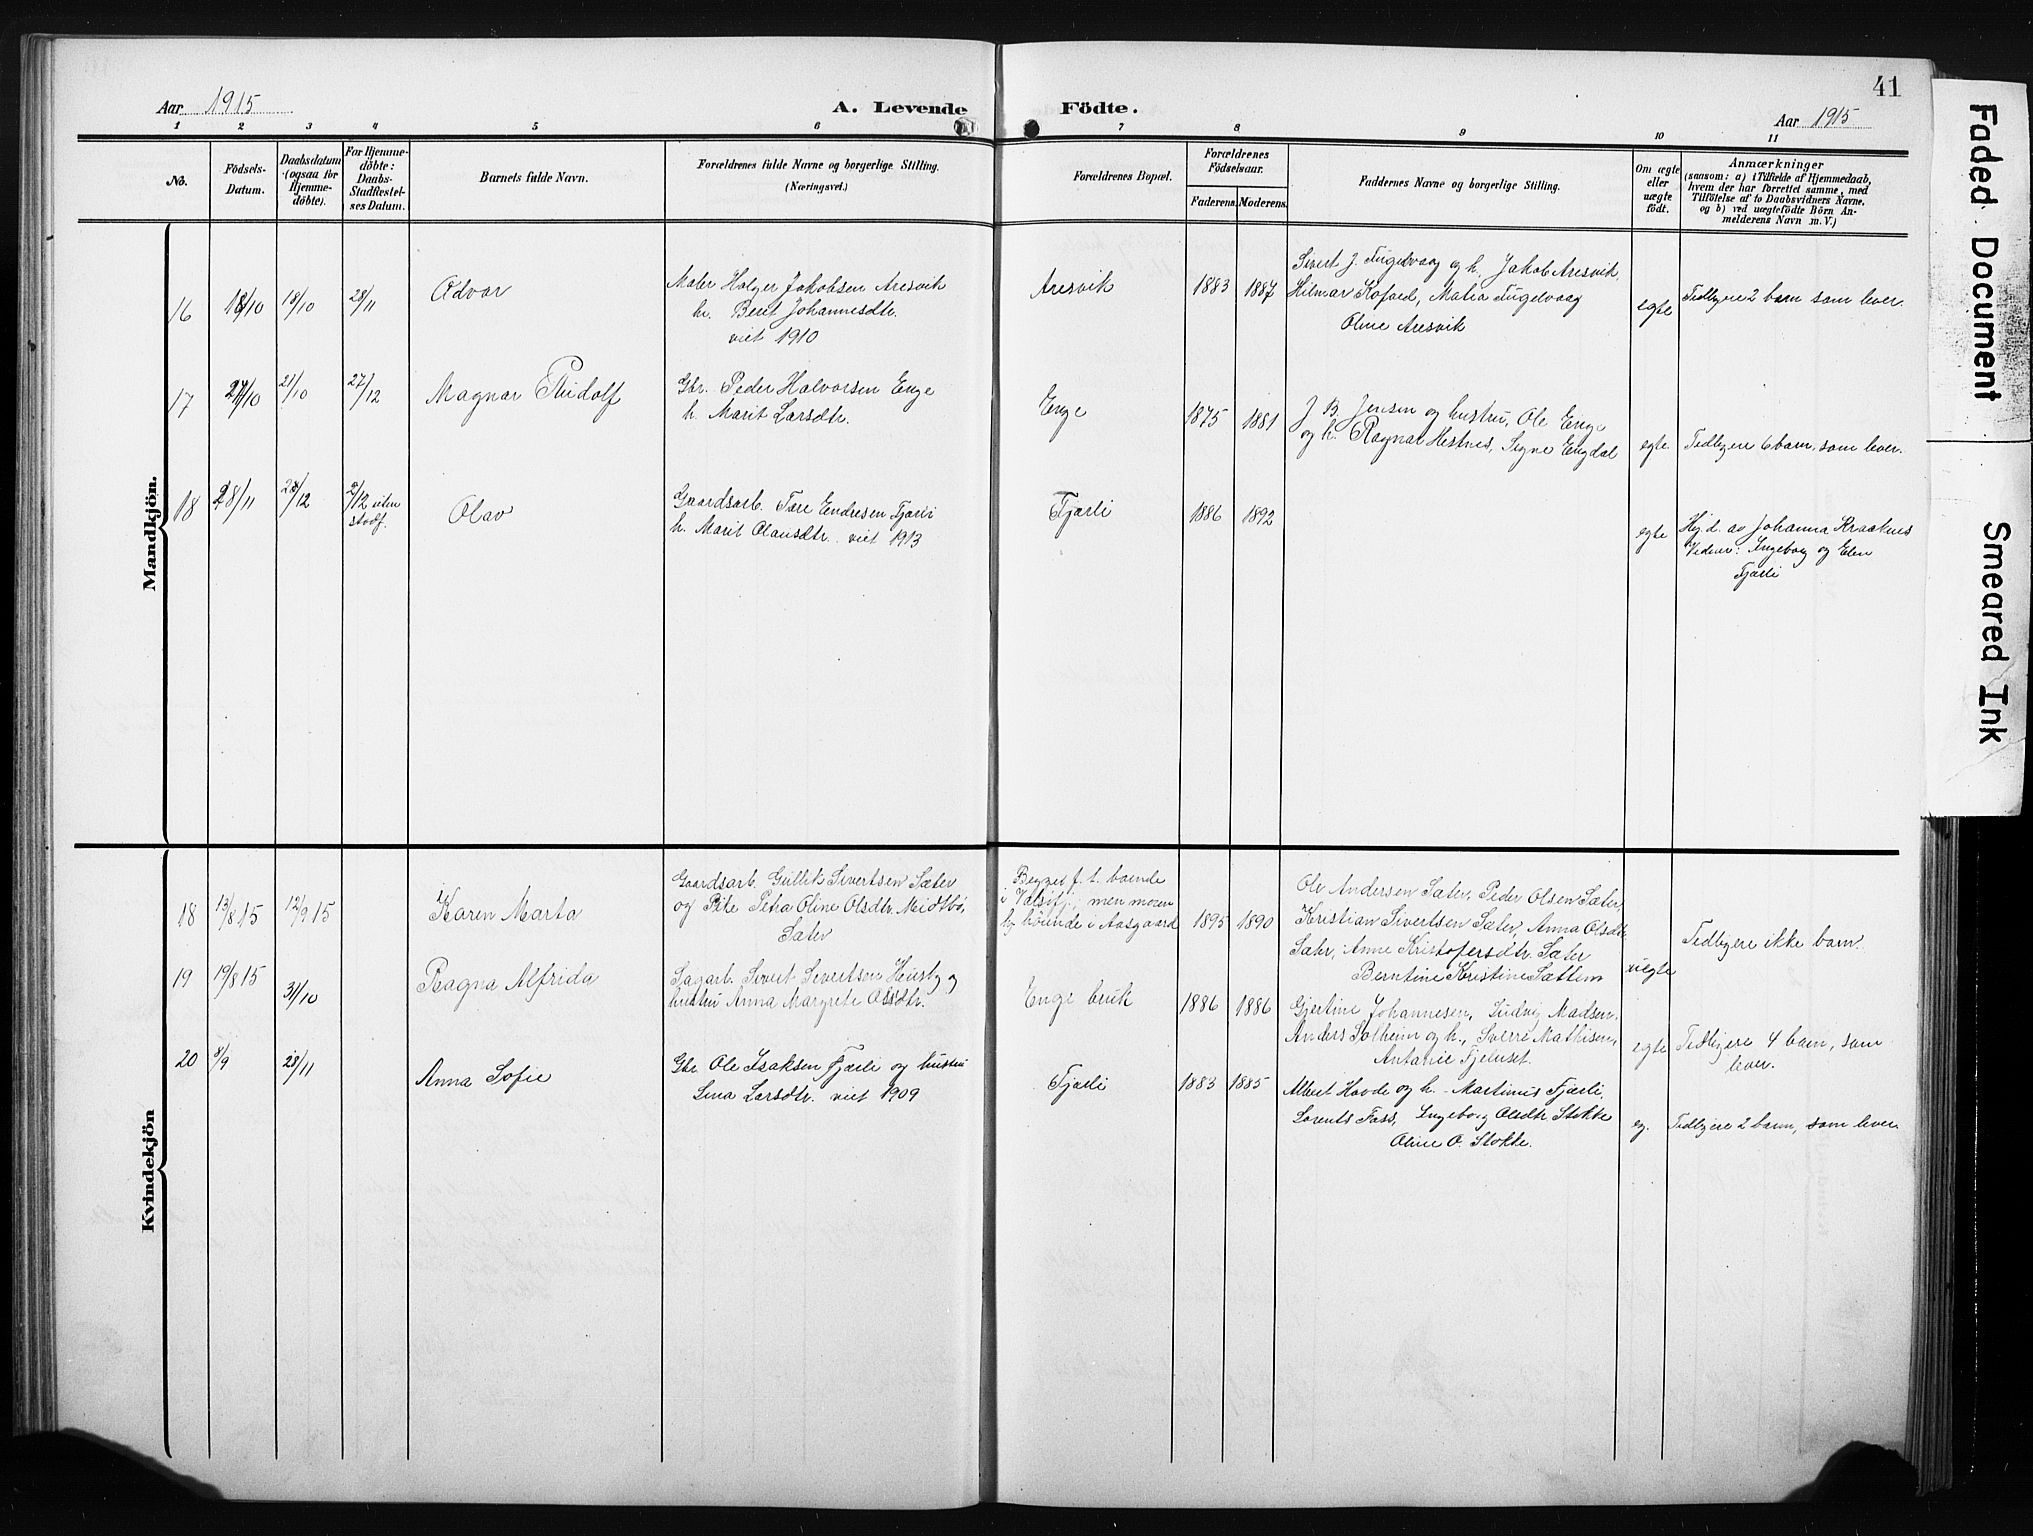 41
Aar 1915
A. Levende Födte.
Aar 1915
1 2 3 4 5 6 7 8 9 10 11
No.
Födsels-
Datum.
Daabsdatum
(ogsaa for
Hjemme-
döbte).
For Hjemme-
döbte:
Daabs-
Stadfestel-
ses Datum.
Barnets fulde Navn.
Forældrenes fulde Navne og borgerlige Stilling.
(Næringsvei.)
Forældrenes Bopæl.
Forældrenes
Födselsaar.
Faderens. Moderens.
Faddernes Navne og borgerlige Stilling.
Om ægte
eller
uægte
födt.
Anmærkninger
(saasom: a) i Tilfælde af Hjemmedaab,
hvem der har forrettet samme, med
Tilföielse af to Daabsvidners Navne,
og b) ved uægtefödte Börn An-
melderens Navn m. V.)
Mandkjön.
16 18/10 18/10 28/11 Advar
Maler Holger Jakobsen Aresvik
h. Berit Johannesdtr.
viet 1910
Aresvik 1883 1887
Sivert J. Fugelvaag og h. Jakob Aresvik,
Hilmar Kofoed, Malia Fugelvaag
Oline Aresvik
egte
Tidligere 2 barn som lever.
17 24/10 21/10 27/12 Magnar Rudolf
Gbr. Peder Halvorsen Enge
h. Marit Larsdtr.
Enge 1875 1881
J. B. Jensen og hustru, Ole Enge
og h. Ragnar Hestnes, Signe Engdal
egte
Tidligere 6 barn, som lever.
18 28/11 28/12 2/12 uten
stadf.
Olav
Gaardsarb. Tore Endresen Fjærli
h. Marit Olausdtr. viet 1913
Fjærli 1886 1892
egte
Hj.d. av Johanna Kraaknes
Vidner: Ingeborg og Elen
Fjærli
Kvindekjön
18 13/8 15 12/9 15 Karen Marta
Gaardsarb. Gullik Sivertsen Sæter
og Pike Petra Oline Olsdtr. Midtbö,
Sæter
Begges f. t. boende
i Valsöfj; men moren
hj. hörende i Aasgaard
1895 1890
Ole Andersen Sæter, Peder Olsen Sæter,
Kristian Sivertsen Sæter, Anna Olsdtr.
Sæter, Anne Kristofersdtr. Sæter
Berntine Kristine Sættem
uegte
Tidligere ikke barn.
19 19/8 15 31/10 Ragna Alfrida
Sagarb. Sivert Sivertsen Husby og
hustru Anna Margrete Olsdtr.
Enge bruk 1886 1886
Gjertine Johannesen, Ludvig Madsen,
Anders Solheim og h., Sverre Mathisen,
Antonie Fjelnset.
egte
Tidligere 4 barn, som
lever.
20 8/9 28/11 Anna Sofie
Gbr Ole Isaksen Fjærli og hustru
Lina Larsdtr. viet 1909
Fjærli 1883 1885
Albert Hovde og h. Martinus Fjærli,
Lorents Foss, Ingeborg Olsdtr Stokke
Oline O. Stokke.
eg.
Tidligere 2 barn, som lever.
Faded Document
Smeared Ink